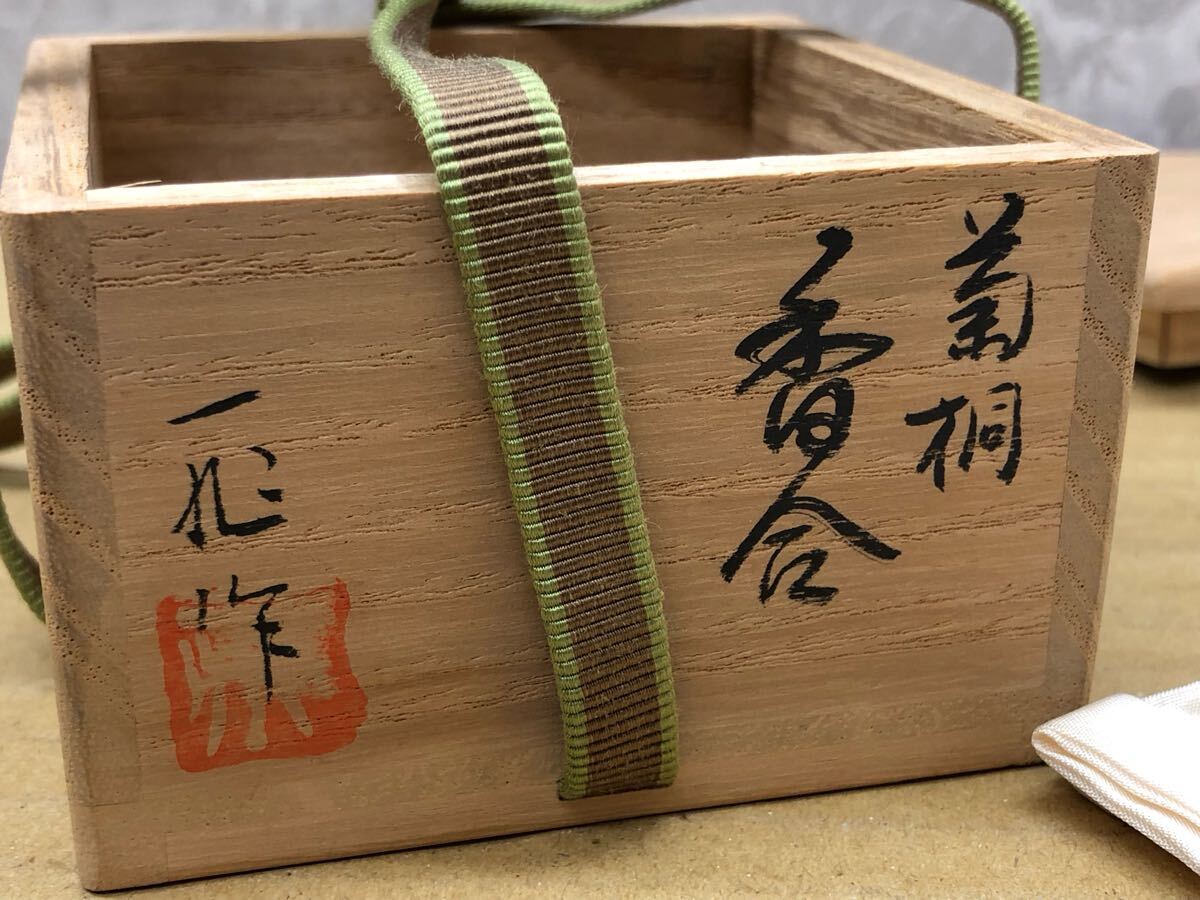 菊桐
香合
一彤作